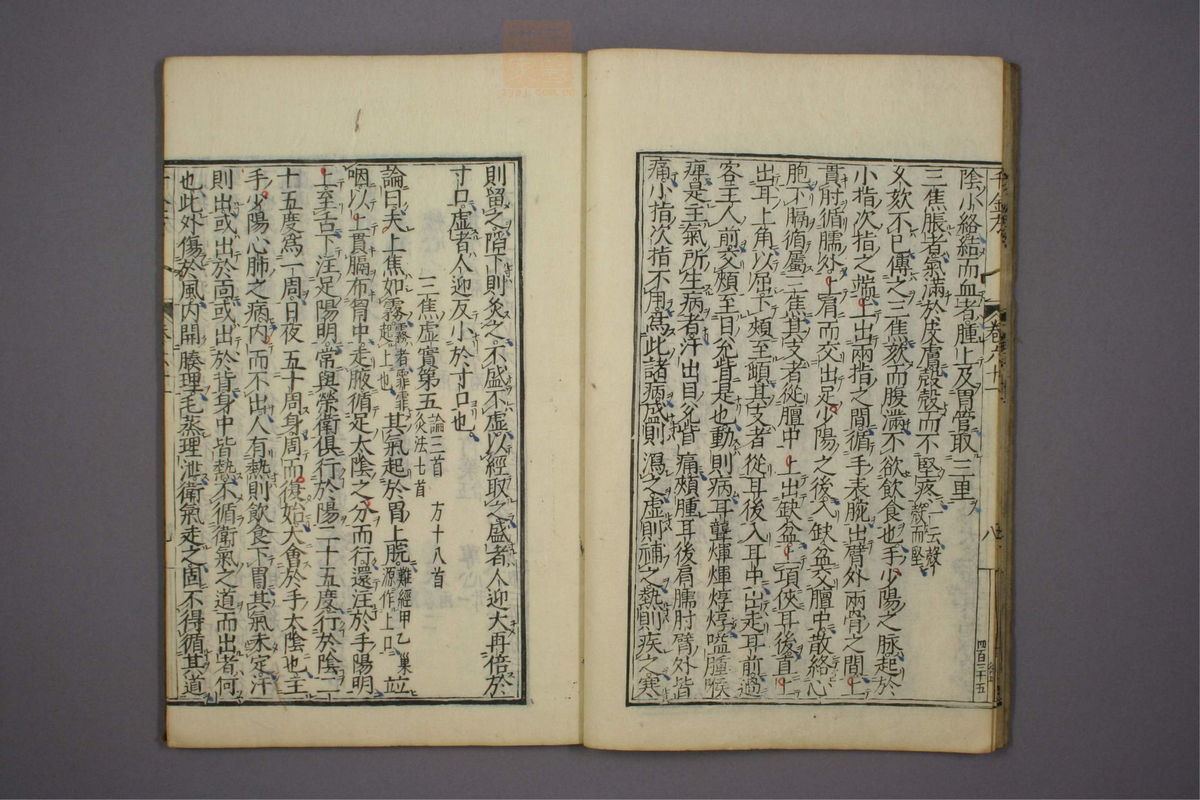 陰小絡結而血者腫上及胃管取三里
三焦脹者氣滿於皮膚殼殼而不堅疼一云殼殼而堅
久欬不已傳之三焦欬而腹滿不欲飲食也手少陽之脉起於
小指次指之端上出兩指之間循手表腕出臂外兩骨之間上
貫肘循臑外上肩而交出足少陽之後入缺盆交膻中散絡心
胞下膈循屬三焦其支者從膻中上出缺盆上項俠耳後直上
出耳上角以屈下頰至䪼其支者從耳後入耳中出走耳前過
客主人前交頰至目兊眥是也動則病耳聾煇煇焞焞嗌腫喉
痺是主氣所生病者汗出目兊眥痛頰腫耳後肩臑肘臂外皆
痛小指次指不用爲此諸病盛則瀉之虛則補之熱則疾之寒
則留之陷下則灸之不盛不虛以經取之盛者人迎大再倍於
寸口虛者人迎反小於寸口也
三焦虛實第五論三首 方十八首 灸法七首
論曰夫上焦如霧霧者霏霏起上也其氣起於胃上脘難經甲乙巢源作上口並
咽以上貫膈布胷中走腋循足太陰之分而行還注於手陽明
上至舌下注足陽明常與榮衛俱行於陽二十五度行於陰二
十五度爲一周日夜五十周身周而復始大會於手太陰也主
手少陽心肺之病內而不出人有熱則飲食下胃其氣未定汗
則出或出於面或出於背身中皆熱不循衛氣之道而出者何
也此外傷於風內開腠理毛蒸理泄衛氣走之固不得循其道